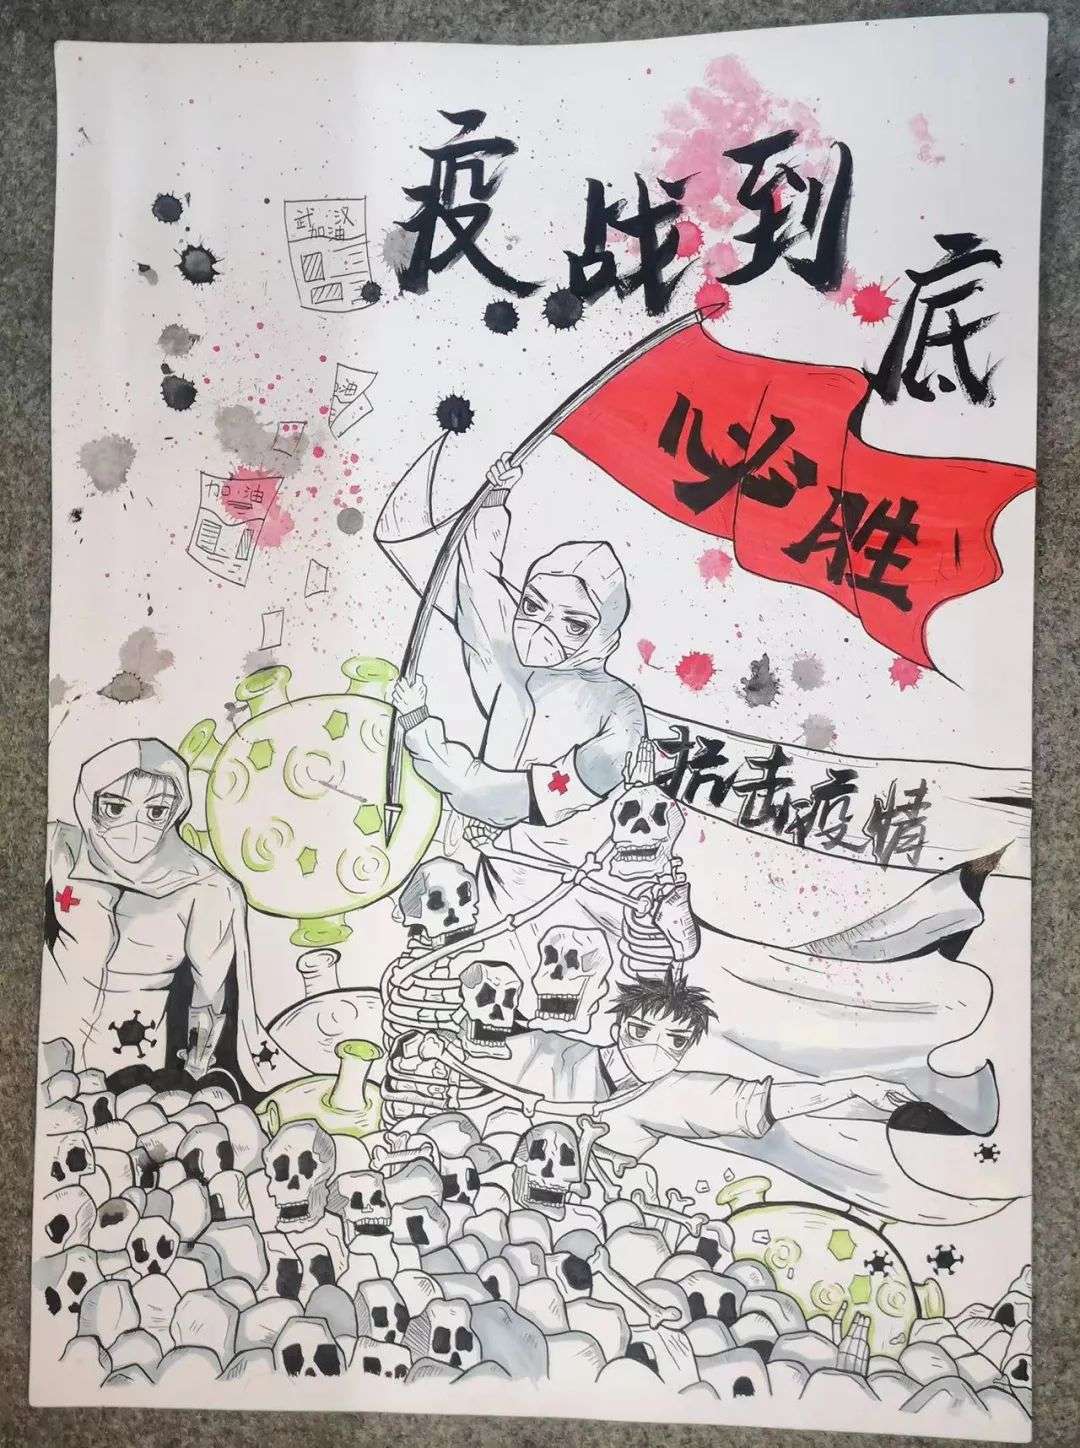 疫战到底
武汉
加油
油
必胜
加油
抗击疫情